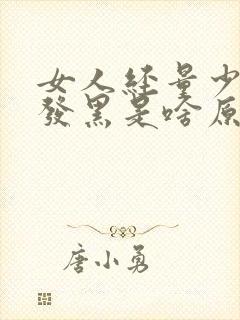 女人经量少
發黑是啥原
唐小勇